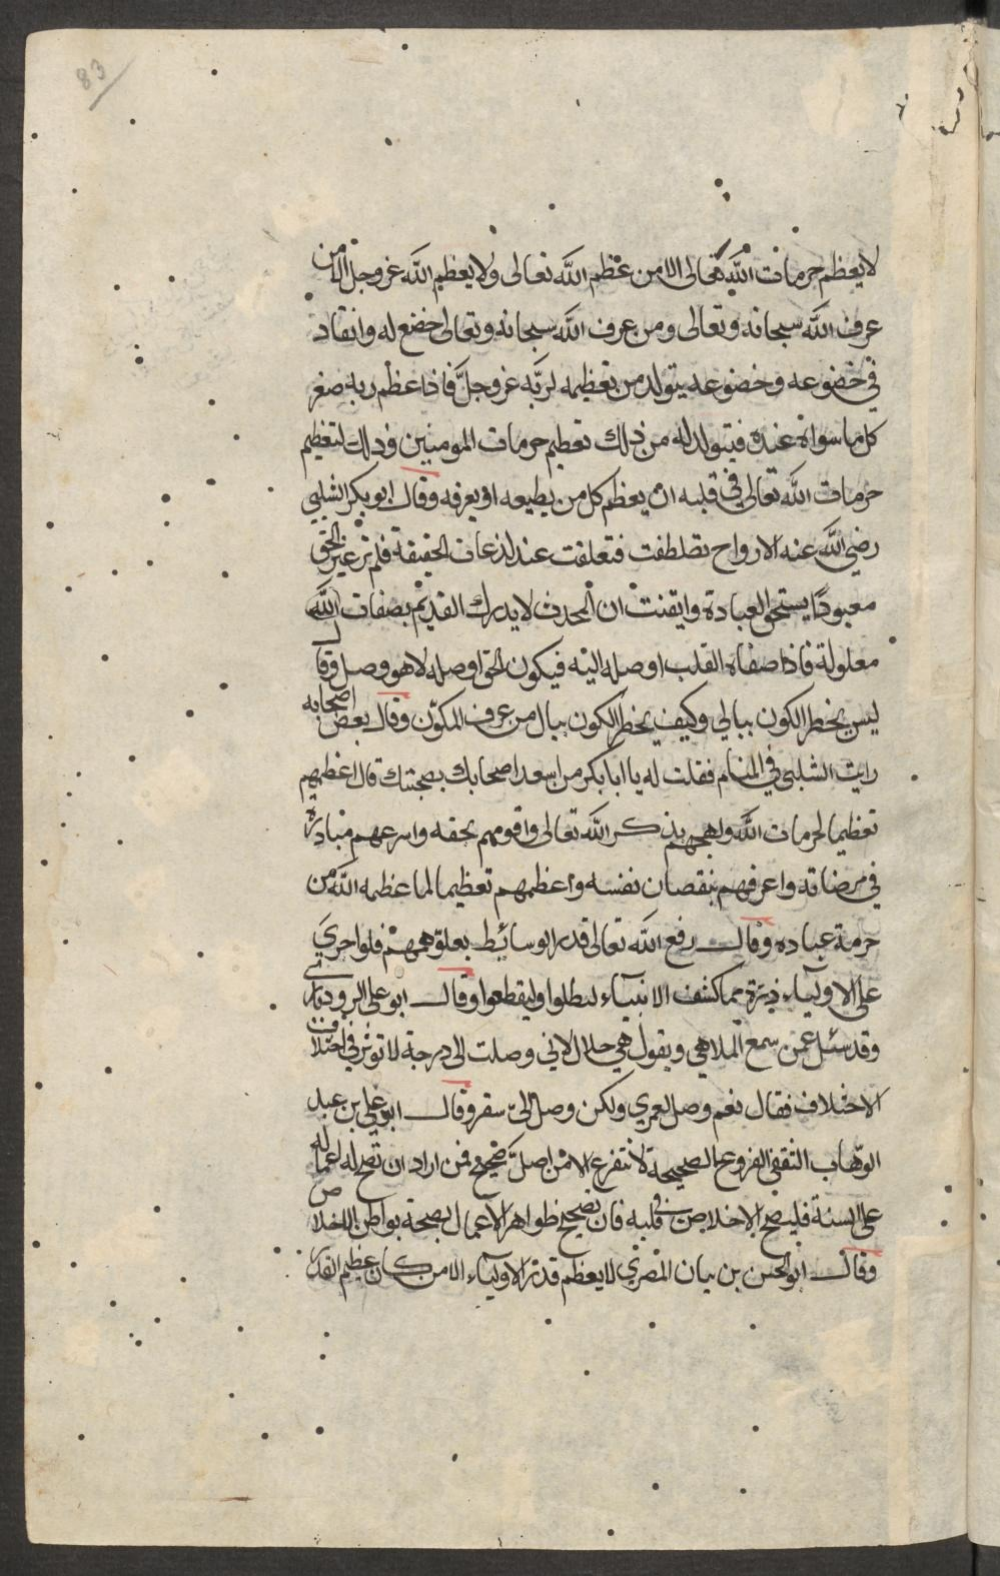 83
لا يعظم حرمات الله تعالى الا من عظم الله تعالى ولا يعظم الله عز وجل الا من
عرف الله سبحانه وتعالى ومن عرف الله سبحانه وتعالى خضع له وانقاد
في خضوعه وخضوعه يتولد من تعظيمه لربه عز وجل فاذا عظم ربه صغر
كل ما سواه عنده فيتولد له من ذلك تعظيم حرمات المومنين وذلك لتعظيم
حرمات الله تعالى في قلبه ان يعظم كل من يطيعه او يعرفه وقال ابو بكر الشبلي
رضي الله عنه الارواح تلطفت فتعلقت عند لذعات الحقيقة فلم تر غير الحق
معبودًا يستحق العبادة وايقنت ان المحدث لا يدرك القديم بصفات الله
معلولة فاذا صفاه القلب اوصله اليه فيكون الحق اوصله لا هو وصل وقا
ليس يخطر الكون ببالي وكيف يخطر الكون ببال من عرف المكون وقال بعض اصحابه
رايت الشلبي في المنام فقلت له يا ابا بكر من اسعد اصحابك بصحبتك قال اعظمهم
تعظيما لحرمات الله والهجهم بذكر الله تعالى واقومهم بحقه واسرعهم مبادرة
في مرضاته واعرفهم بنقصان نفسه واعظمهم تعظيما لما عظمه الله من
حرمة عباده وقال رفع الله تعالى قدر الوسائط بعلو هممهم فلو اجري
على الاولياء ذرة مما كشف الانبياء لبطلوا وليقطعوا وقال ابو على الرودبارى
وقد سئل عمن سمع الملاهي ويقول هي حلال لاني وصلت الى درجة لا توثر في اختلاف
الاختلاف فقال نعم وصل لعمري ولكن وصل الى سقر وقال ابو علي بن عبد
الوهاب الثقفي الفروع الصحيحة لا تتفرع الا من اصل صحيح فمن اراد ان تصح له اعماله
على السنة فليصحح الاخلاص في قلبه فان تصحيح ظواهر الاعمال بصحة بواطن الاخلاص
وقال ابو الحسن بن بيان المصري لا يعظم قدر الاولياء الا من كان عظيم القدر